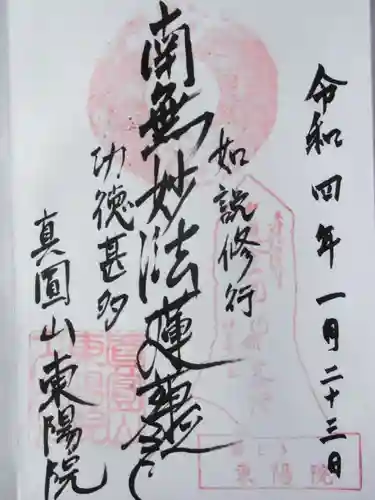 令和四年一月二十三日
如説修行
南無妙法蓮華経
功徳甚多
真圓山東陽院
東陽院